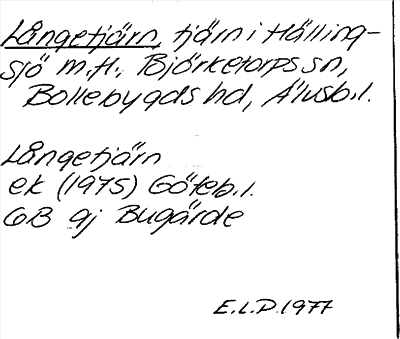 Långetjärn, tjärn i Hälling-
sjö m.fl., Björketorps sn,
Bollebygds hd, Älvsb.l.
Långetjärn
ek (1975) Göteb.l.
6B 9j Bugärde
E.L.D.1977